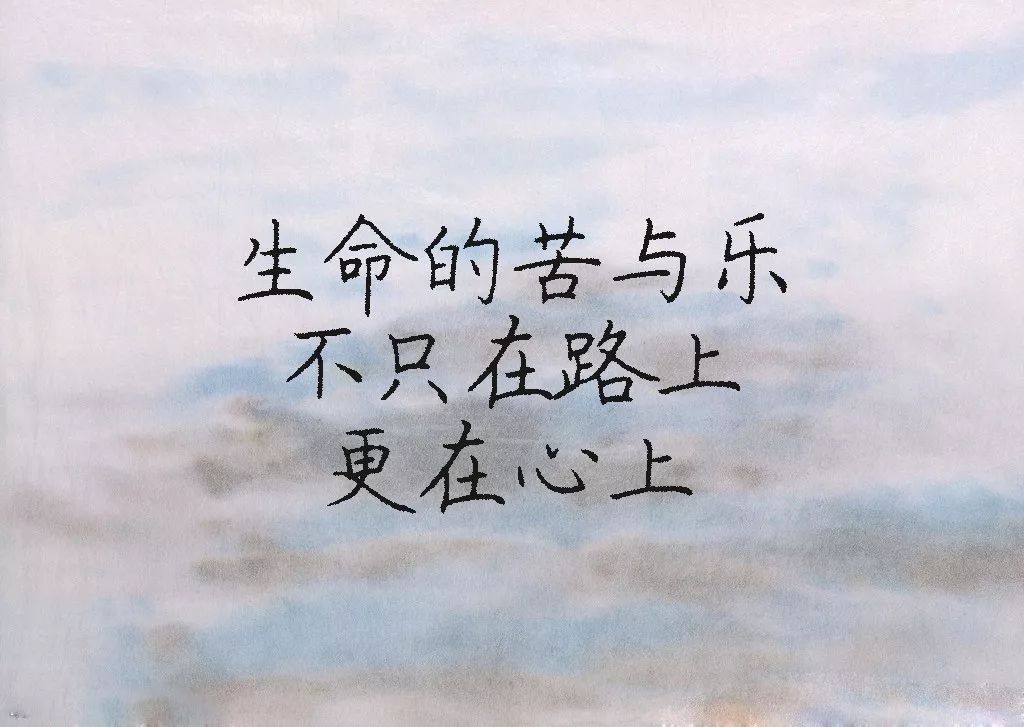 生命的苦与乐
不只在路上
更在心上